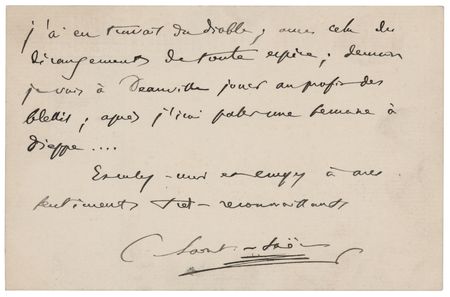 j'ai eu travail du diable ; avec cela des
dérangements de toute espèce ; demain
je vais à Deauville jouer au profit des
blessés ; après j'irai passer une semaine à
Dieppe ....
Excusez-moi et croyez à mes
sentiments très-reconnaissants
C. Saint-Saëns